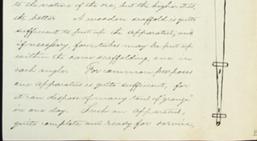 to the nature of the ore, but the higher the
the better. A wooden scaffold is quite
sufficient to put up the apparatus, and
if necessary four tubes may be put up
within the same scaffolding, one in
each angle. For common purposes
one apparatus is quite sufficient, for
it can dispose of many tons of "grange"
in one day. Such an apparatus,
quite complete and ready for service